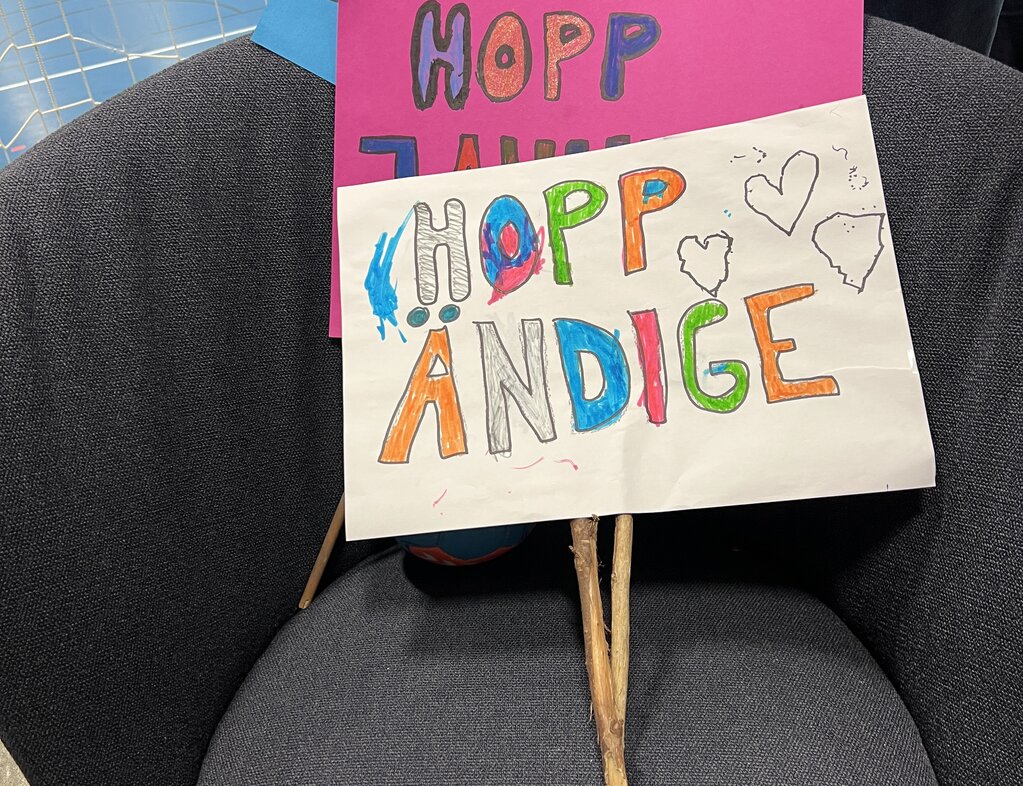 HOPP
HOPP
ÄNDIGE